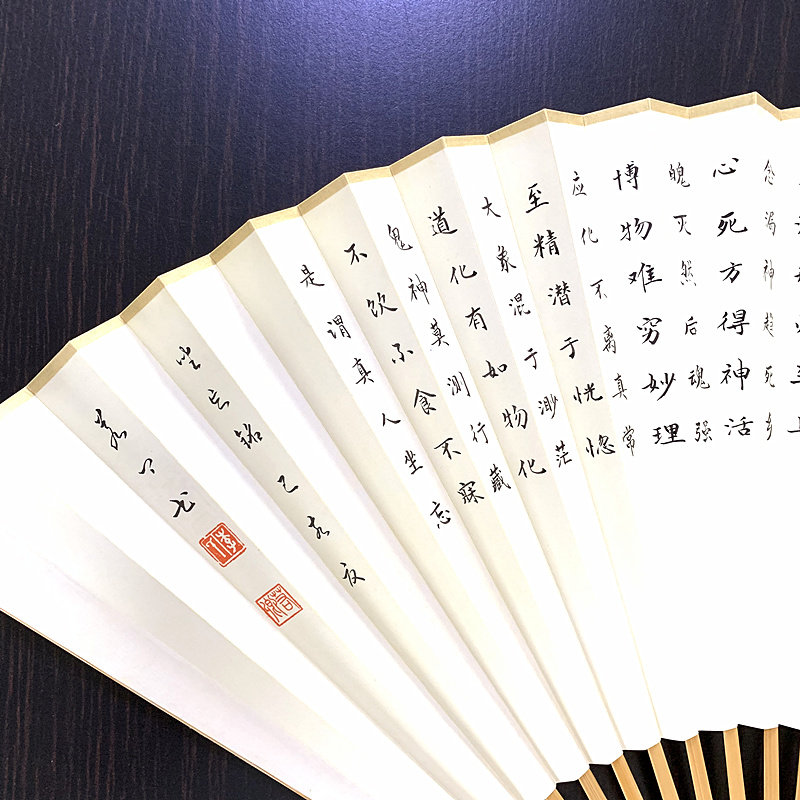 念漏神趋死乡
心死方得神活
魄灭然后魂强
博物难穷妙理
应化不离真常
至精潜于恍惚
大象混于渺茫
道化有如物化
鬼神莫测行藏
不饮不食不寐
是谓真人坐忘
坐忘铭己亥夜
书